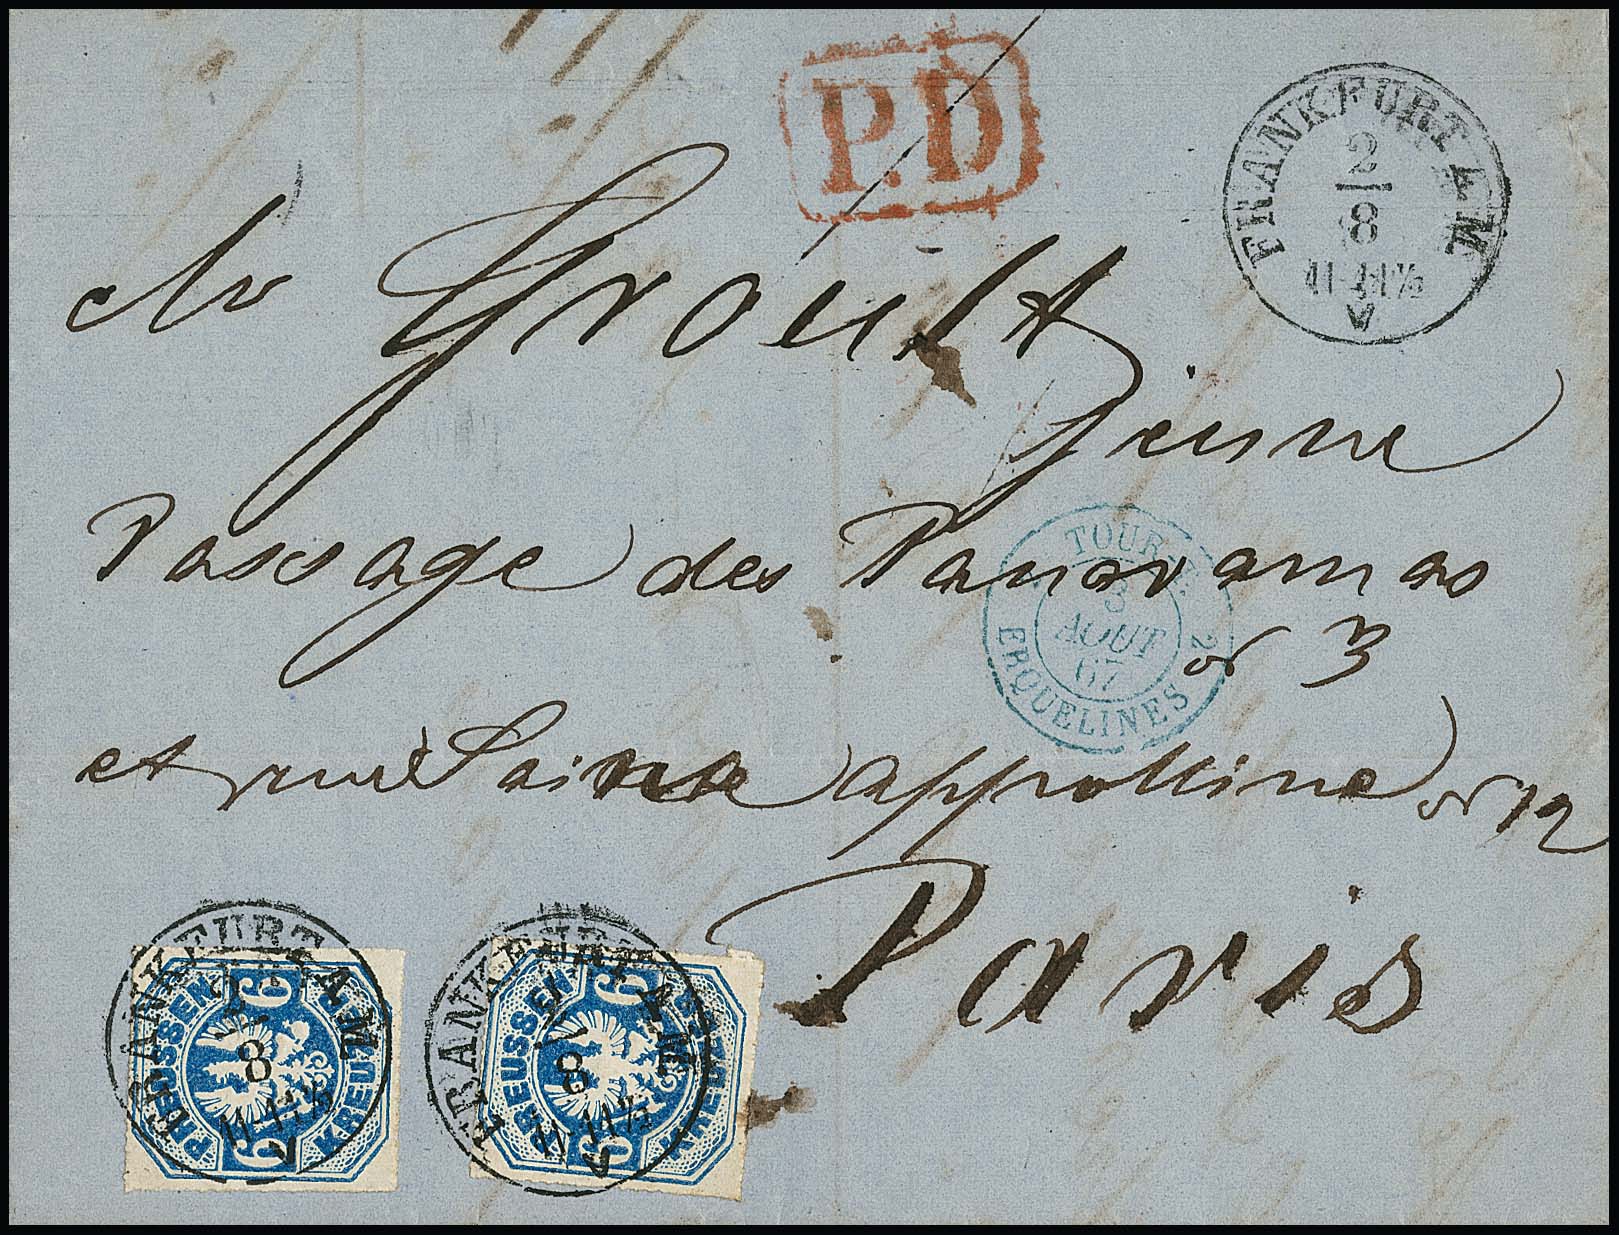 P.D
FRANKFURT A M
2
8
11-11½
V
Mr Groult
jeune
Passage des Panoramas
nr 3
TOUR-T. 2
3
AOUT
67
ERQUELINES
et rue Sainte appolline nr 12
Paris
FRANKFURT A M
8
11-11½
V
PREUSSEN
6
6
KREUZER
FRANKFURT A M
2
8
11-11½
V
PREUSSEN
6
6
KREUZER